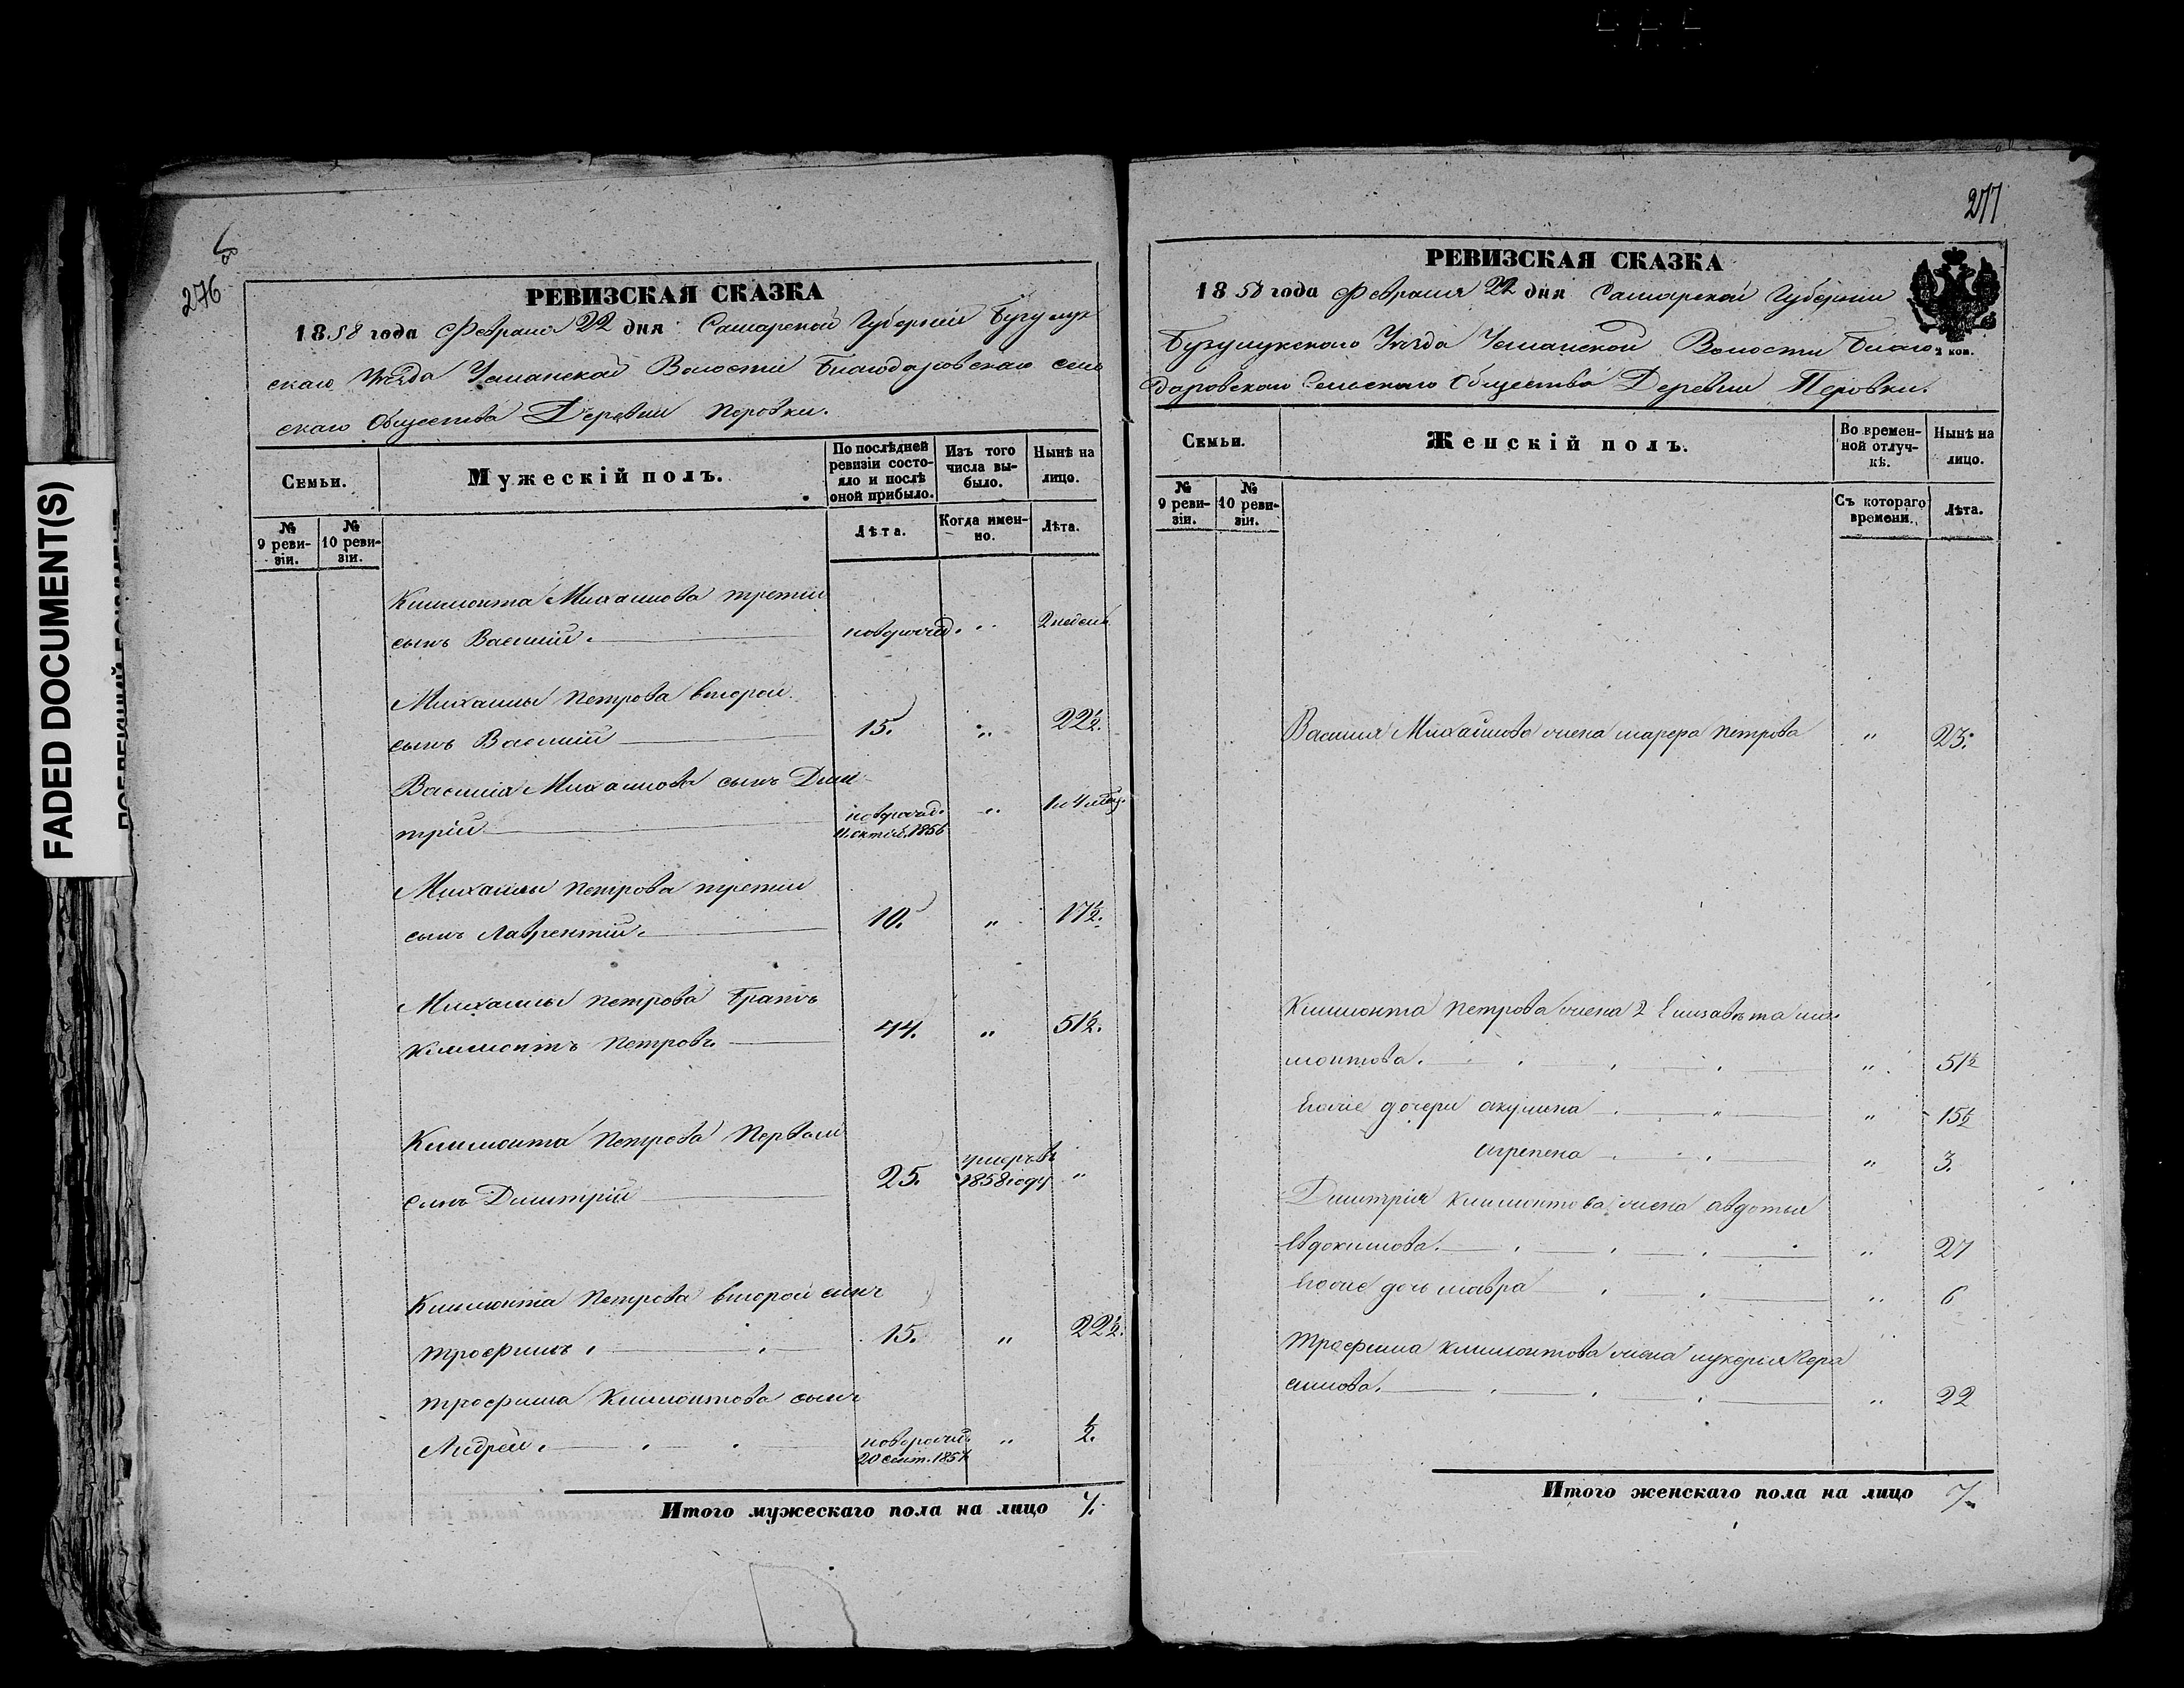 FADED DOCUMENT(S)
276
РЕВИЗСКАЯ СКАЗКА
1858 года Февраля 22 дня Самарской Губернии Бузулук
скаго Уѣзда Усманской Волости Благодаровскаго сель
скаго Общества Деревни Перовки.
Семьи.
Мужескій полъ.
По послѣдней ревизіи состояло и послѣ оной прибыло.
Изъ того числа выбыло.
Нынѣ на лицо.
№ 9 ревизіи.
№ 10 ревизіи.
Лѣта.
Когда именно.
Лѣта.
Климонта Михаилова третій
сынъ Василій. новорожд. " 2 недел.
Михаилы Петрова второй
сынъ Василій 15. " 22½.
Василія Михаилова сынъ Дми
трій новорожд. 11 октяб. 1856 " 1 и 4 мѣс.
Михаилы Петрова третій
сынъ Лаврентій. 10. " 17½.
Михаилы Петрова братъ
Климонтъ Петровъ 44. " 51½.
Климонта Петрова первой
сынъ Димитрій 25. умеръ въ 1858 году "
Климонта Петрова второй сынъ
Трофимъ 15. " 22½.
Трофима Климонтова сынъ
Андрей. новорожд. 20 сент. 1857 " ½.
Итого мужескаго пола на лицо 7.
277
РЕВИЗСКАЯ СКАЗКА
1858 года Февраля 22 дня Самарской Губернии
Бузулукского Уѣзда Усманской Волости Благо
даровского Сельского Общества Деревни Перовки.
2 коп.
Семьи.
Женскій полъ.
Во временной отлучкѣ.
Нынѣ на лицо.
№ 9 ревизіи.
№ 10 ревизіи.
Съ котораго времени.
Лѣта.
Василия Михайлова жена марфа Петрова " 23.
Климонта Петрова жена 2 Елизавѣта
монтова. " 51½
Ихъ дочери акулина " 15½
агрепена " 3.
Димитрія Климонтова жена авдотья
Евдокимова. " 27
дочь мавра " 6
Трофима Климонтова жена лукерья Гера
симова. " 22
Итого женскаго пола на лицо 7.